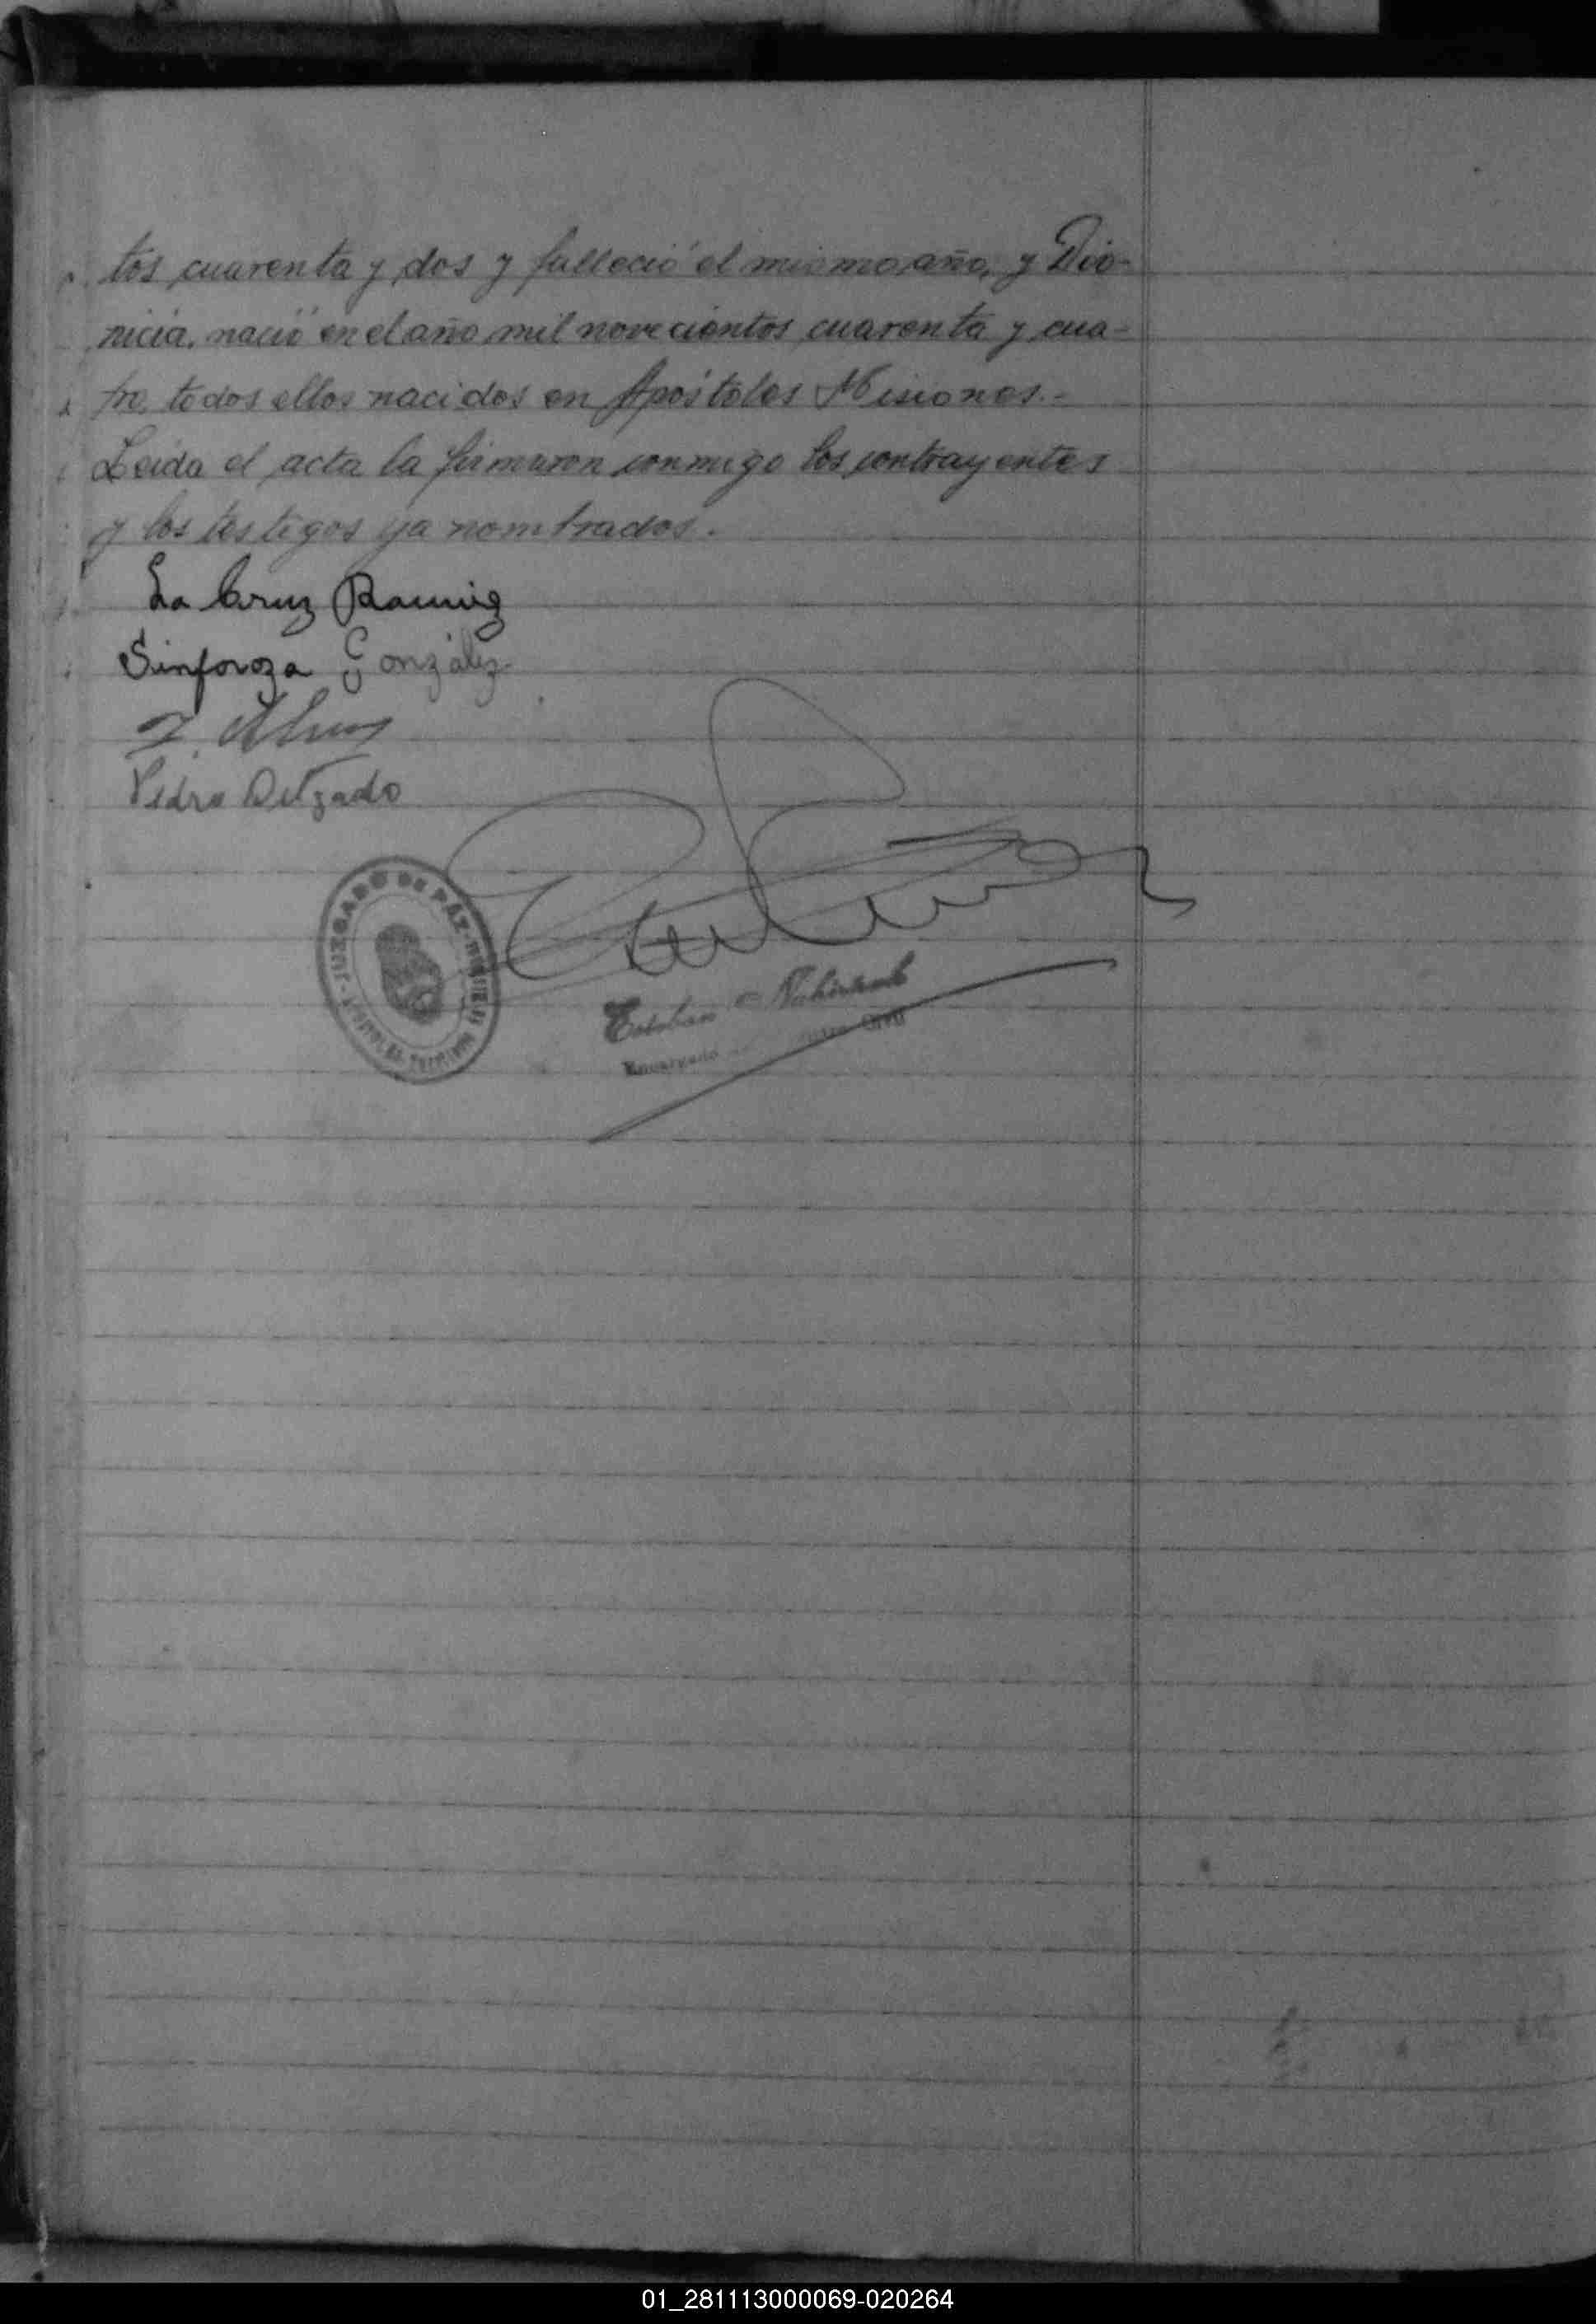 tos cuarenta y dos y falleció el mismo año, y Dio-
nicia, nació en el año mil novecientos cuarenta y cua-
tro, todos ellos nacidos en Apóstoles Misiones.-
Leida el acta la firmaron conmigo los contrayentes
y los testigos ya nombrados.
La Cruz Ramirez
Sinforoza González
Pedro Delgado
JUZGADO DE PAZ
Esteban
Encargado Civil
01_281113000069-020264